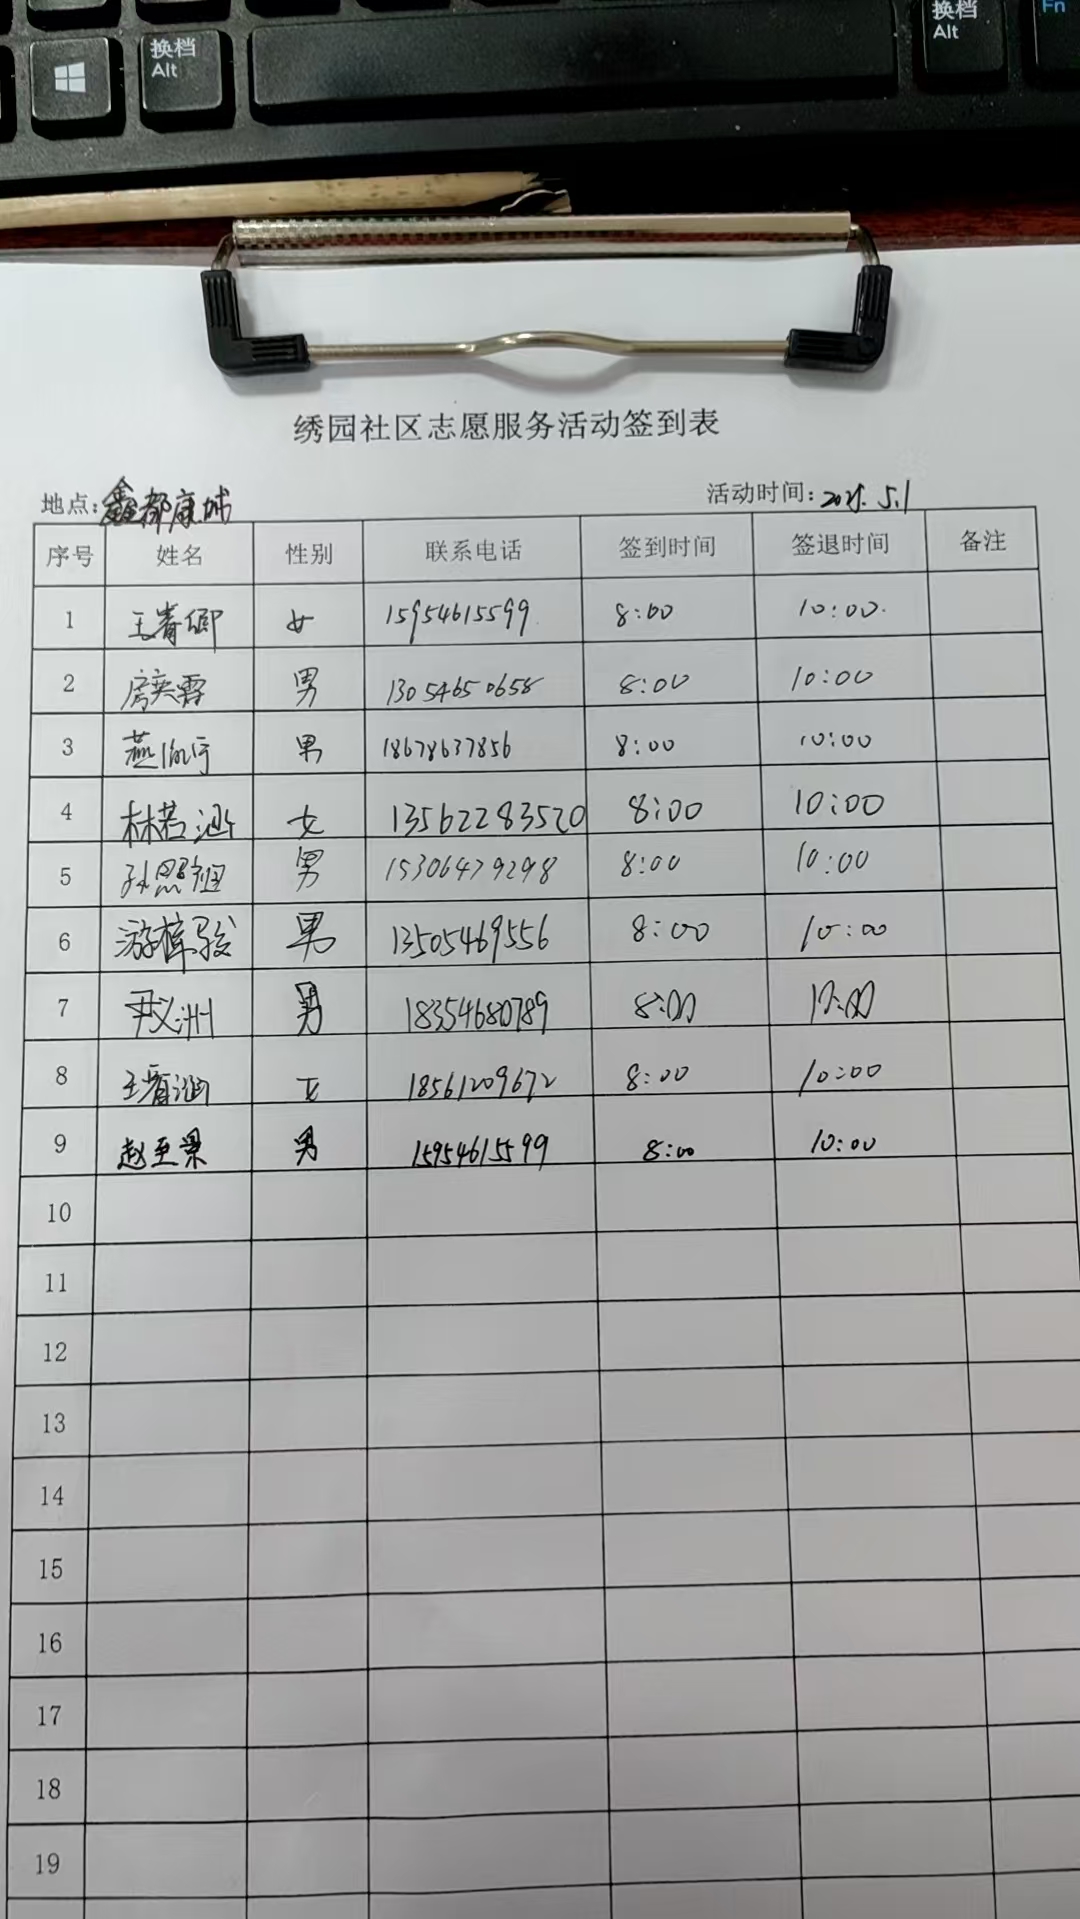 换档
Alt
换档
Alt
Fn
绣园社区志愿服务活动签到表
地点: 鑫都康城 活动时间: 2025. 5.1
序号 姓名 性别 联系电话 签到时间 签退时间 备注
1 王青卿 女 15954615599 8:00 10:00.
2 房奕霖 男 13054650658 8:00 10:00
3 燕 男 18678637856 8:00 10:00
4 林若涵 女 13562283520 8:00 10:00
5 孙照翔 男 15306479298 8:00 10:00
6 游梓骏 男 13505469556 8:00 10:00
7 尹义洲 男 18354680789 8:00 10:00
8 王涵 女 18561209672 8:00 10:00
9 赵至景 男 15954615599 8:00 10:00
10
11
12
13
14
15
16
17
18
19